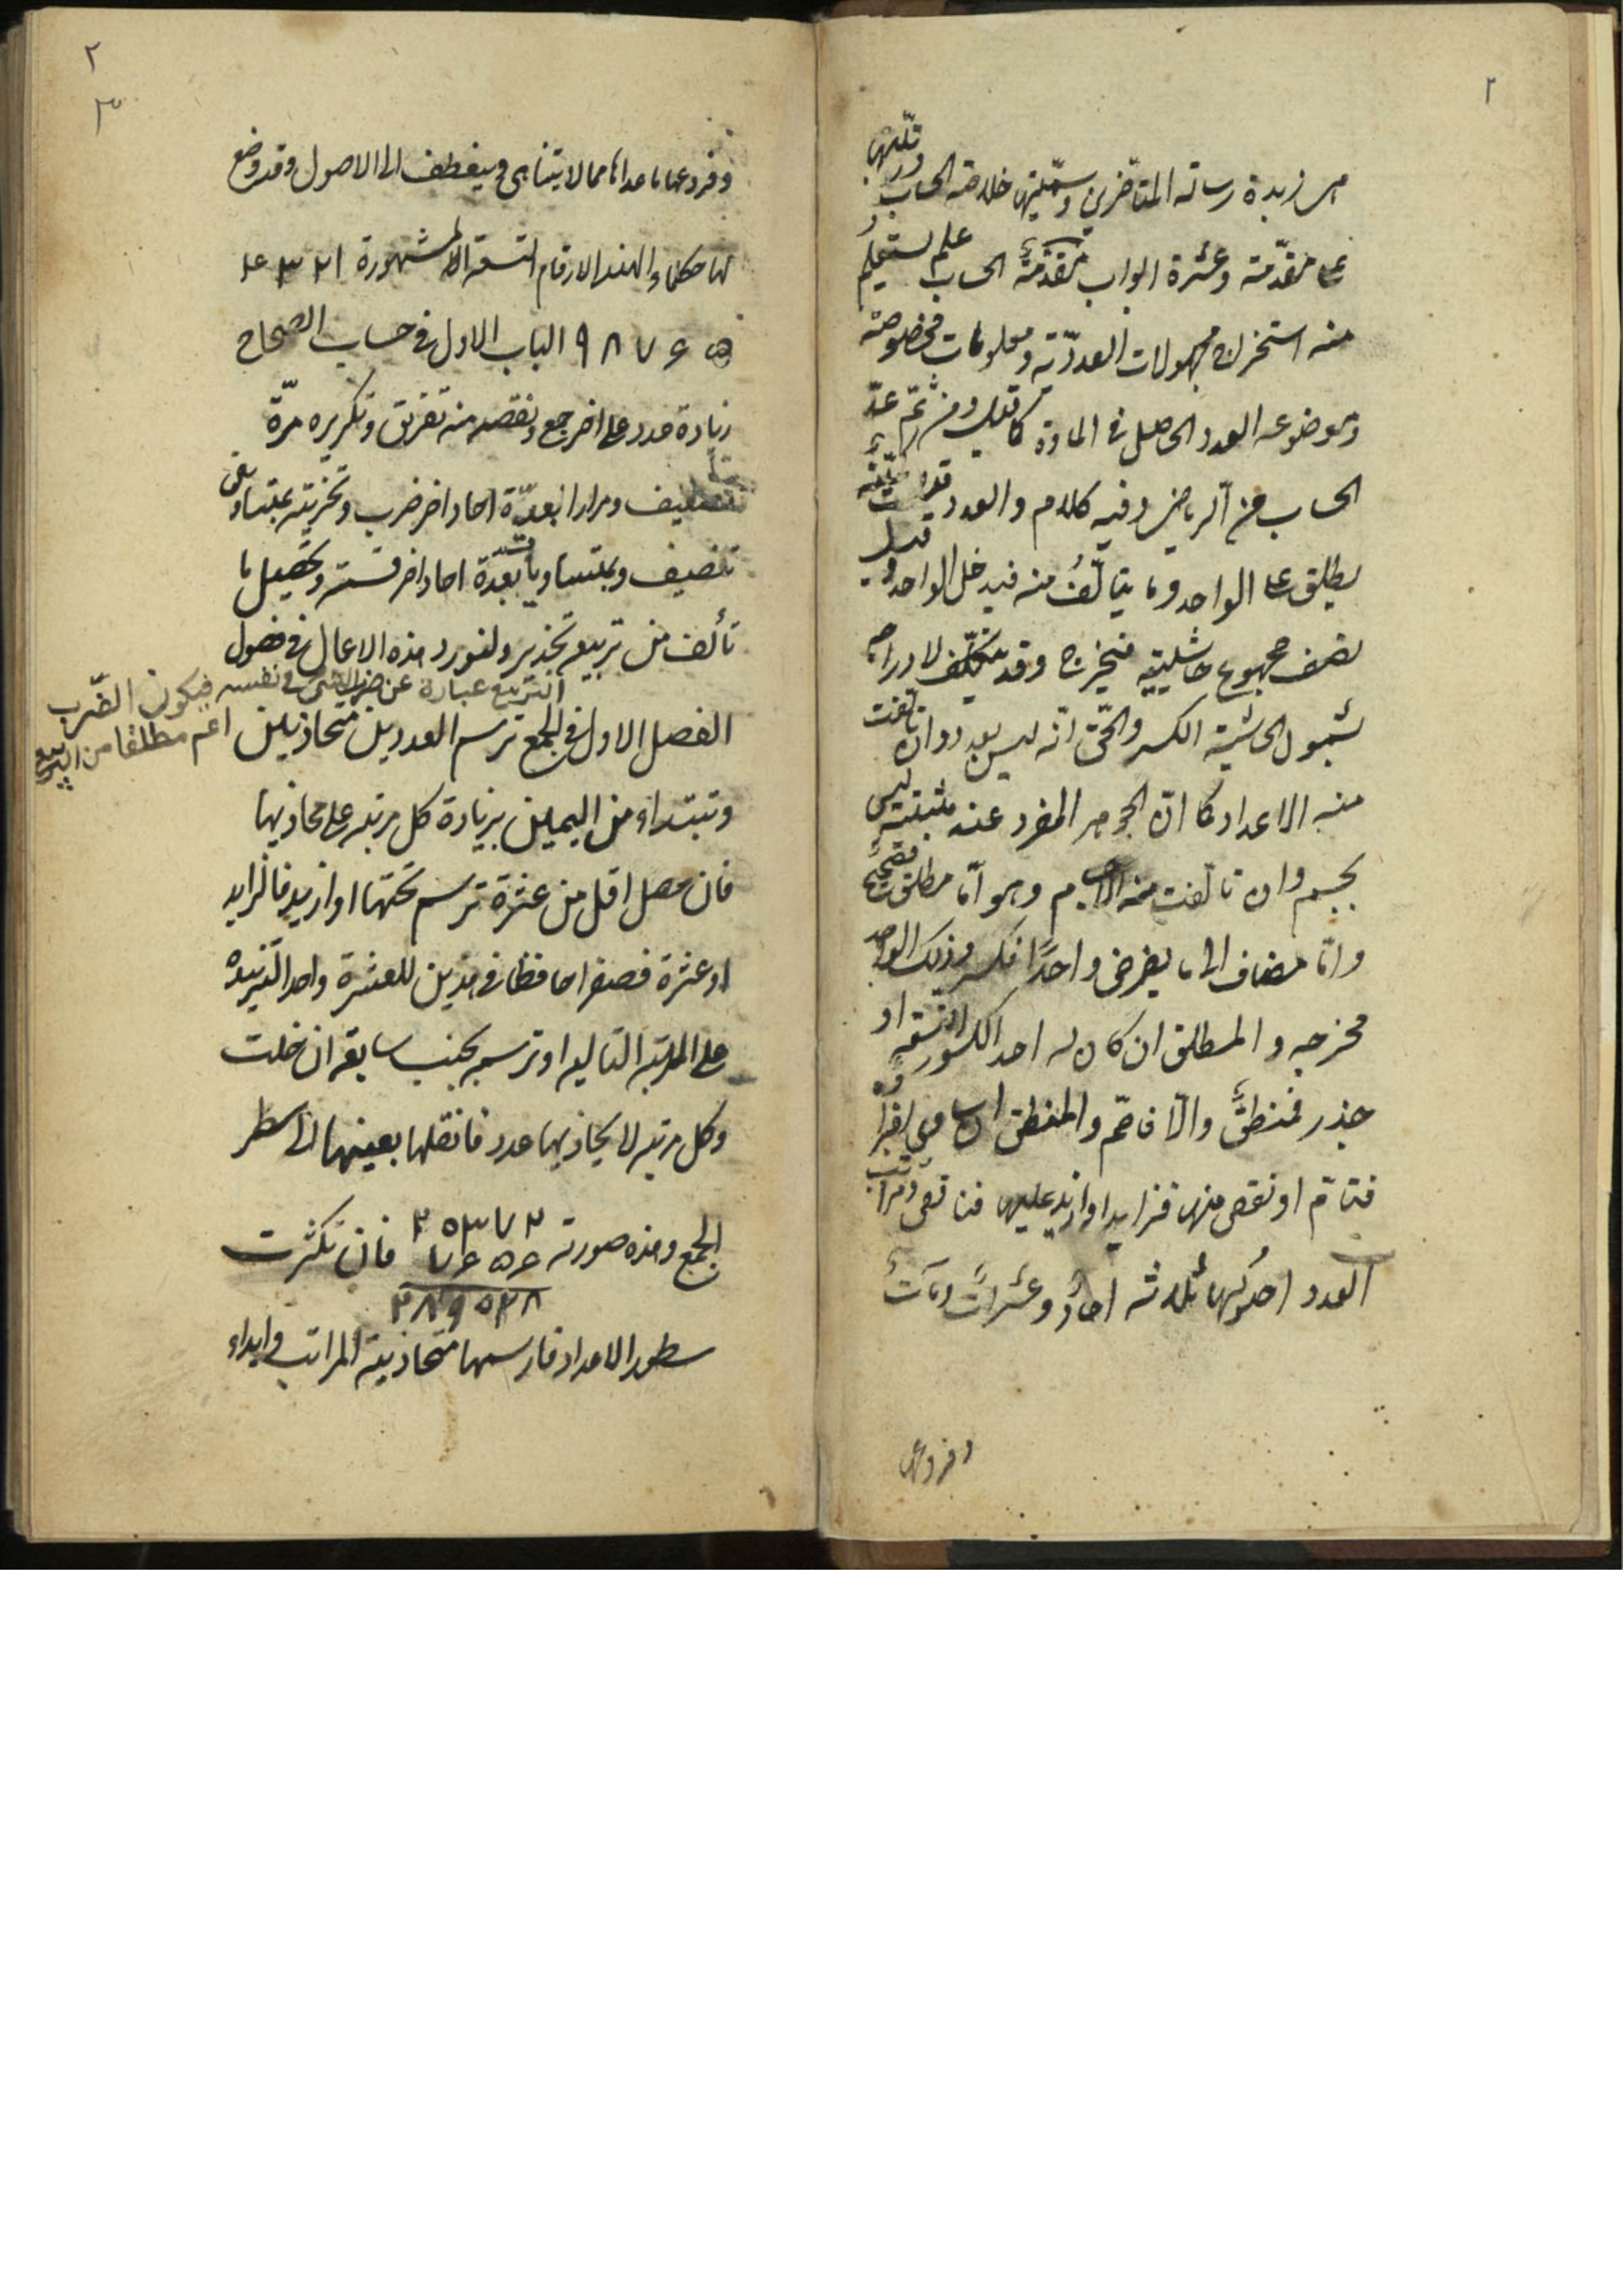 ٢
هى زبدة رسائل المتأخرين وسمّيتها خلاصة الحساب ورتّبتها
على مقدّمة وعشرة ابواب مقدّمة الحساب علم يستعلم
منه استخراج مجهولات العدديّة من معلومات مخصوصة
وموضوعه العدد الحاصل فى المادة كما قيل ومن ثمّ عدّ
الحساب من الرياضى وفيه كلام والعدد قيل كميّة
يطلق على الواحد وما يتألّف منه فيدخل الواحد وقيل
نصف مجموع حاشيتيه فيخرج وقد يتكلّف لادراجه
بشمول الحاشية الكسر والحقّ انّه ليس بعدد وان تالّفت
منه الاعداد كما انّ الجوهر الفرد عند مثبتيه ليس
بجسم وان تألّفت منه الاجسام وهو امّا مطلق فصحيح
وامّا مضاف الى ما يفرض واحدًا فكسر وذلك الواحد
مخرجه والمطلق ان كان له احد الكسور التسعة او
جذر فمنطق والّا فاصمّ والمنطق ان ساوى اجزاؤه
فتامّ او نقص منها فزايد او زايد عليها فناقص ومراتب
العدد اصولها ثلاثة احاد وعشرات ومآت
وفروعها
٢
٣
وفروعها ما عداها مما لا يتناهى وينعطف الى الاصول وقد وضع
لها حكماء الهند الارقام التسعة المشهورة ١ ٢ ٣ ۴
۵ ۶ ٧ ٨ ٩ الباب الاول فى حساب الصحاح
زيادة عدد على اخر جمع ونقصه منه تفريق وتكريره مرّة
تضعيف ومرارا بعدّة احاد اخر ضرب وتجزيته بمتساويين
تنصيف وبمتساويات بعدّة احاد اخر قسمة وتحصيل ما
تألف من تربيعه تجذير ولنورد هذه الاعمال فى فصول
التربيع عبارة عن ضرب الشئ فى نفسه فيكون الضّرب
اعم مطلقا من التربيع
الفصل الاول فى الجمع ترسم العددين متحاذيين
وتبتداء من اليمين بزيادة كل مرتبه على محاذيها
فان حصل اقل من عشرة ترسم تحتها او ازيد فالزايد
او عشرة فصفرا حافظا فى هذين للعشرة واحدا لتزيده
على المرتبة التاليه او ترسمه بجنب سابقه ان خلت
وكل مرتبه لا يحاذيها عدد فانقلها بعينها الى سطر
الجمع وهذه صورته ٢٥٣٧٢ فان تكثرت
٧۶۵۶
سطور الاعداد فارسمها متحاذية المراتب وابداء